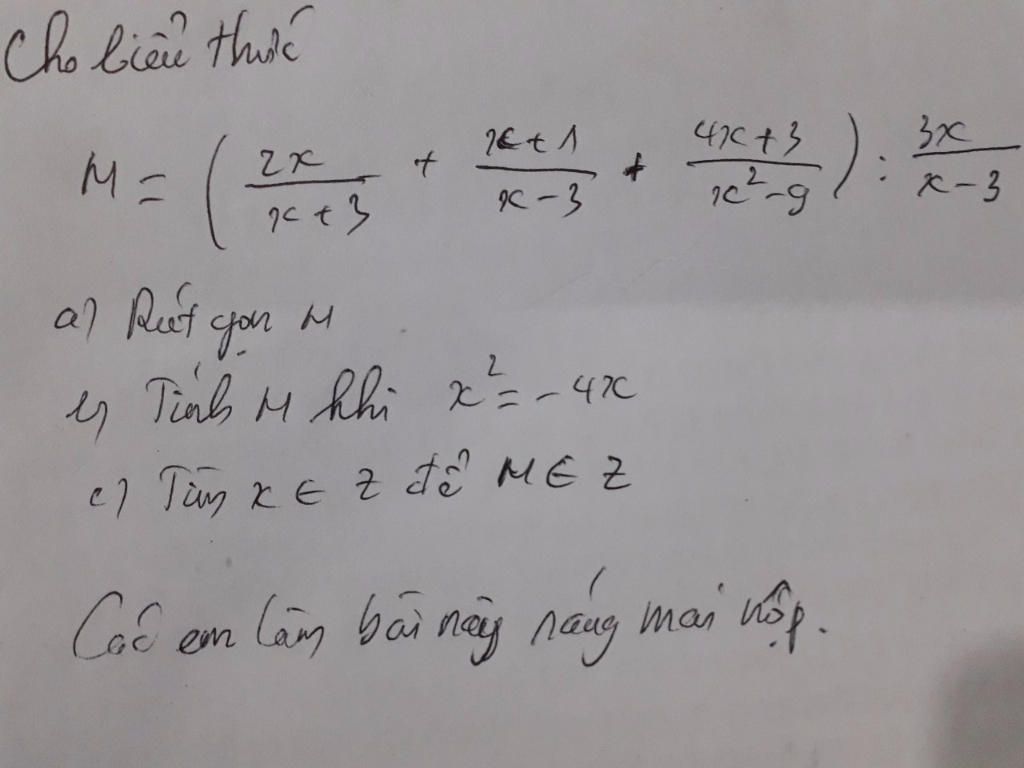 Cho biểu thức
M = ( 2x/(x+3) + (x+1)/(x-3) + (4x+3)/(x²-9) ) : 3x/(x-3)
a) Rút gọn M
b) Tính M khi x² = -4x
c) Tìm x ∈ Z để M ∈ Z
Các em làm bài này sáng mai nộp.